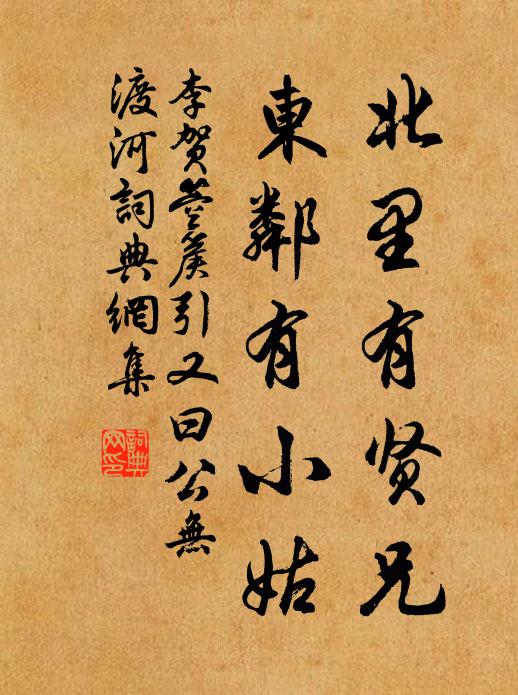 北里有贤兄
東鄰有小姑
李賀箜篌引又曰公無
渡河詞典網集
詞典網印